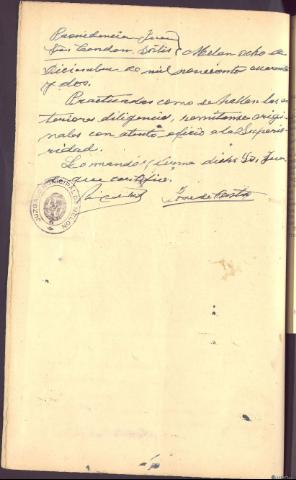 Providencia Juez
Sr. Condon Sotés } Melón ocho de
Diciembre de mil novecientos cuarenta
y dos.
Practicadas como se hallan las an
teriores diligencias, remítanse origi
nales con atento oficio a la Superio
ridad.
Lo mandó y firma dicho Sr. Juez
de que certifico.
José de Castro